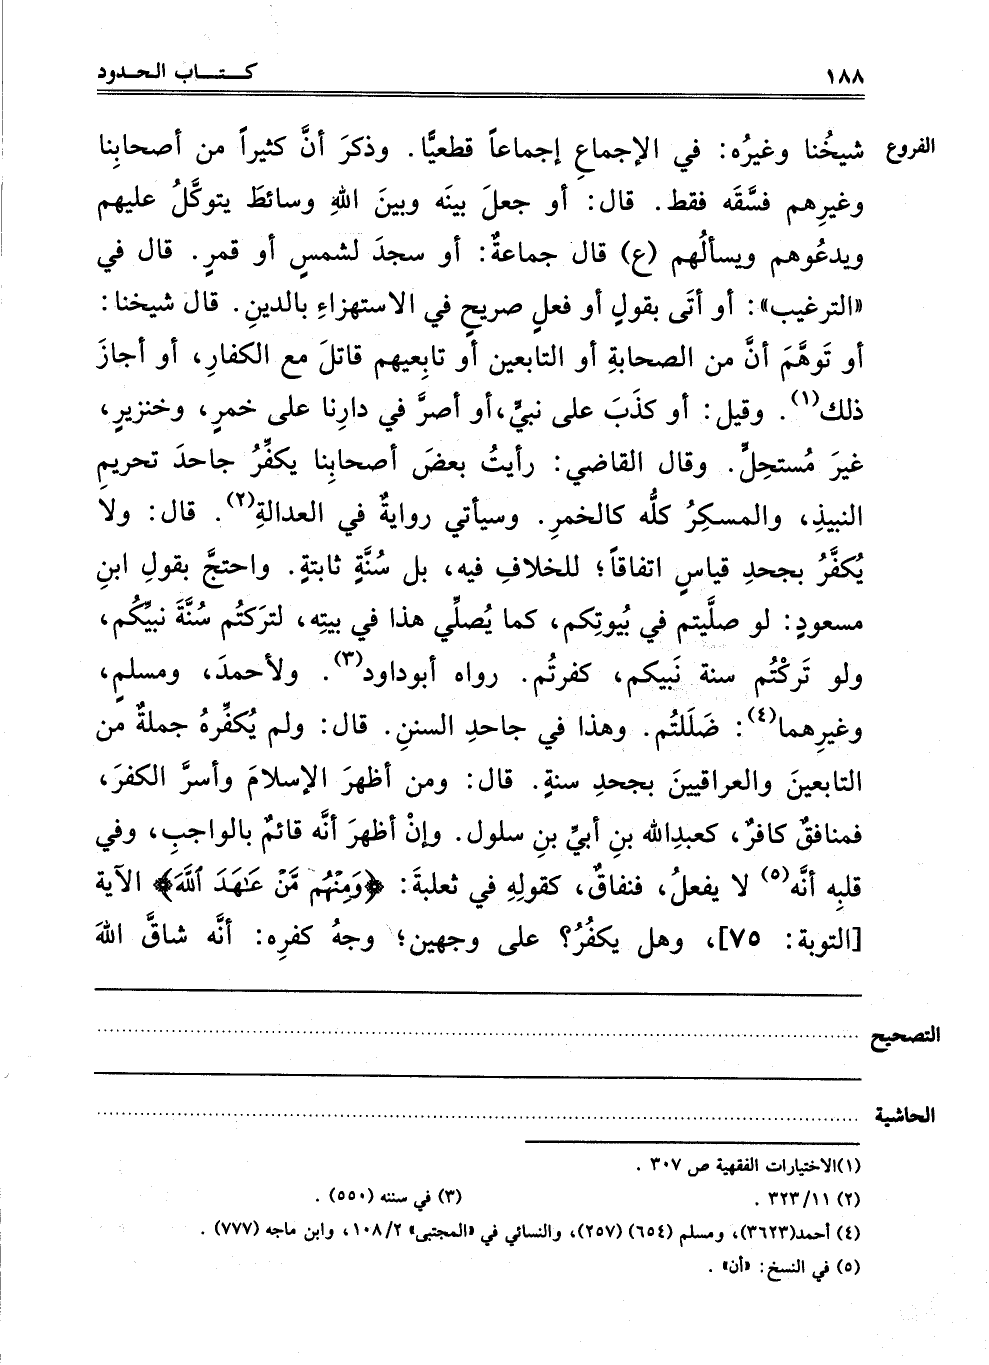 ١٨٨ كتاب الحدود
الفروع شيخُنا وغيرُه: في الإجماعِ إجماعاً قطعيًّا. وذكرَ أنَّ كثيراً من أصحابِنا
وغيرِهم فسَّقَه فقط. قال: أو جعلَ بينَه وبينَ اللهِ وسائطَ يتوكَّلُ عليهم
ويدعُوهم ويسألُهم (ع) قال جماعةٌ: أو سجدَ لشمسٍ أو قمرٍ. قال في
«الترغيب»: أو أتَى بقولٍ أو فعلٍ صريحٍ في الاستهزاءِ بالدينِ. قال شيخنا:
أو تَوهَّمَ أنَّ من الصحابةِ أو التابعين أو تابِعيهم قاتلَ مع الكفارِ، أو أجازَ
ذلك(١). وقيل: أو كذَبَ على نبيٍّ، أو أصرَّ في دارِنا على خمرٍ، وخنزيرٍ،
غيرَ مُستحِلٍّ. وقال القاضي: رأيتُ بعضَ أصحابِنا يكفِّرُ جاحدَ تحريمِ
النبيذِ، والمسكِرُ كلُّه كالخمرِ. وسيأتي روايةٌ في العدالةِ(٢). قال: ولا
يُكفَّرُ بجحدِ قياسٍ اتفاقاً؛ للخلافِ فيه، بل سُنَّةٍ ثابتةٍ. واحتجَّ بقولِ ابنِ
مسعودٍ: لو صلَّيتم في بُيوتِكم، كما يُصلِّي هذا في بيتِه، لتركتُم سُنَّةَ نبيِّكُم،
ولو تَركْتُم سنة نَبيكم، كفرتُم. رواه أبوداود(٣). ولأحمدَ، ومسلمٍ،
وغيرِهما(٤): ضَلَلتُم. وهذا في جاحدِ السننِ. قال: ولم يُكفِّرهُ جملةٌ من
التابعينَ والعراقيينَ بجحدِ سنةٍ. قال: ومن أظهرَ الإسلامَ وأسرَّ الكفرَ،
فمنافقٌ كافرٌ، كعبدالله بنِ أبيِّ بنِ سلول. وإنْ أظهرَ أنَّه قائمٌ بالواجبِ، وفي
قلبِه أنَّه(٥) لا يفعلُ، فنفاقٌ، كقولِهِ في ثعلبةَ: ﴿وَمِنْهُم مَّنْ عَـٰهَدَ ٱللَّهَ﴾ الآية
[التوبة: ٧٥]، وهل يكفُرُ؟ على وجهين؛ وجهُ كفرِه: أنَّه شاقَّ اللهَ
التصحيح ........
الحاشية ........
(١)الاختيارات الفقهية ص ٣٠٧ .
(٢) ٣٢٣/١١ . (٣) في سننه (٥٥٠) .
(٤) أحمد(٣٦٢٣)، ومسلم (٦٥٤) (٢٥٧)، والنسائي في «المجتبى» ١٠٨/٢، وابن ماجه (٧٧٧) .
(٥) في النسخ: «أن» .